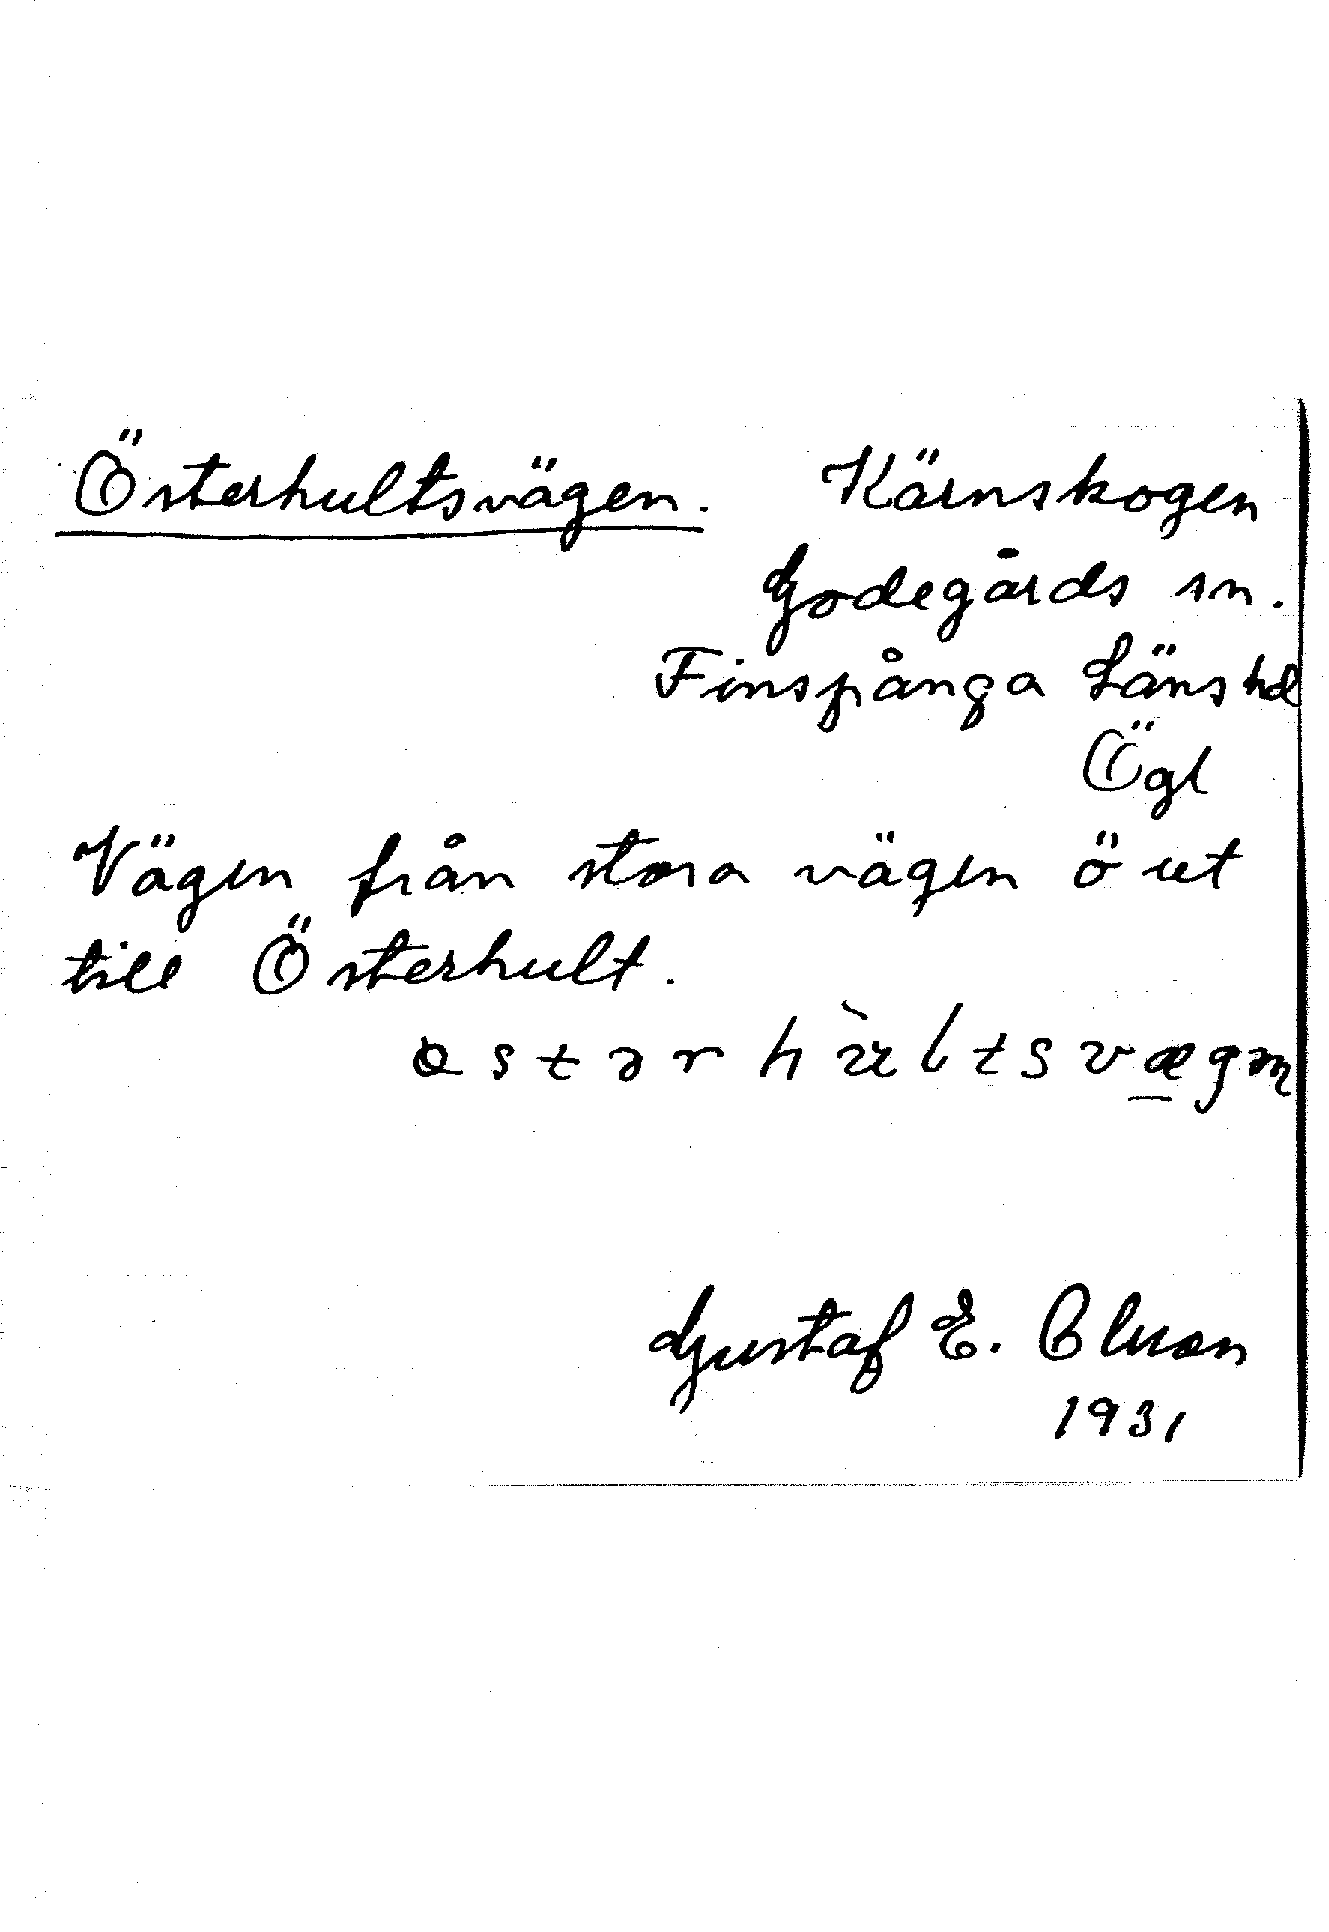 Österhultsvägen. Kärnskogen
Godegårds sn.
Finspånga Läns hd
Ögl
Vägen från stora vägen ö ut
till Österhult.
Gustaf E. Olsson
1931